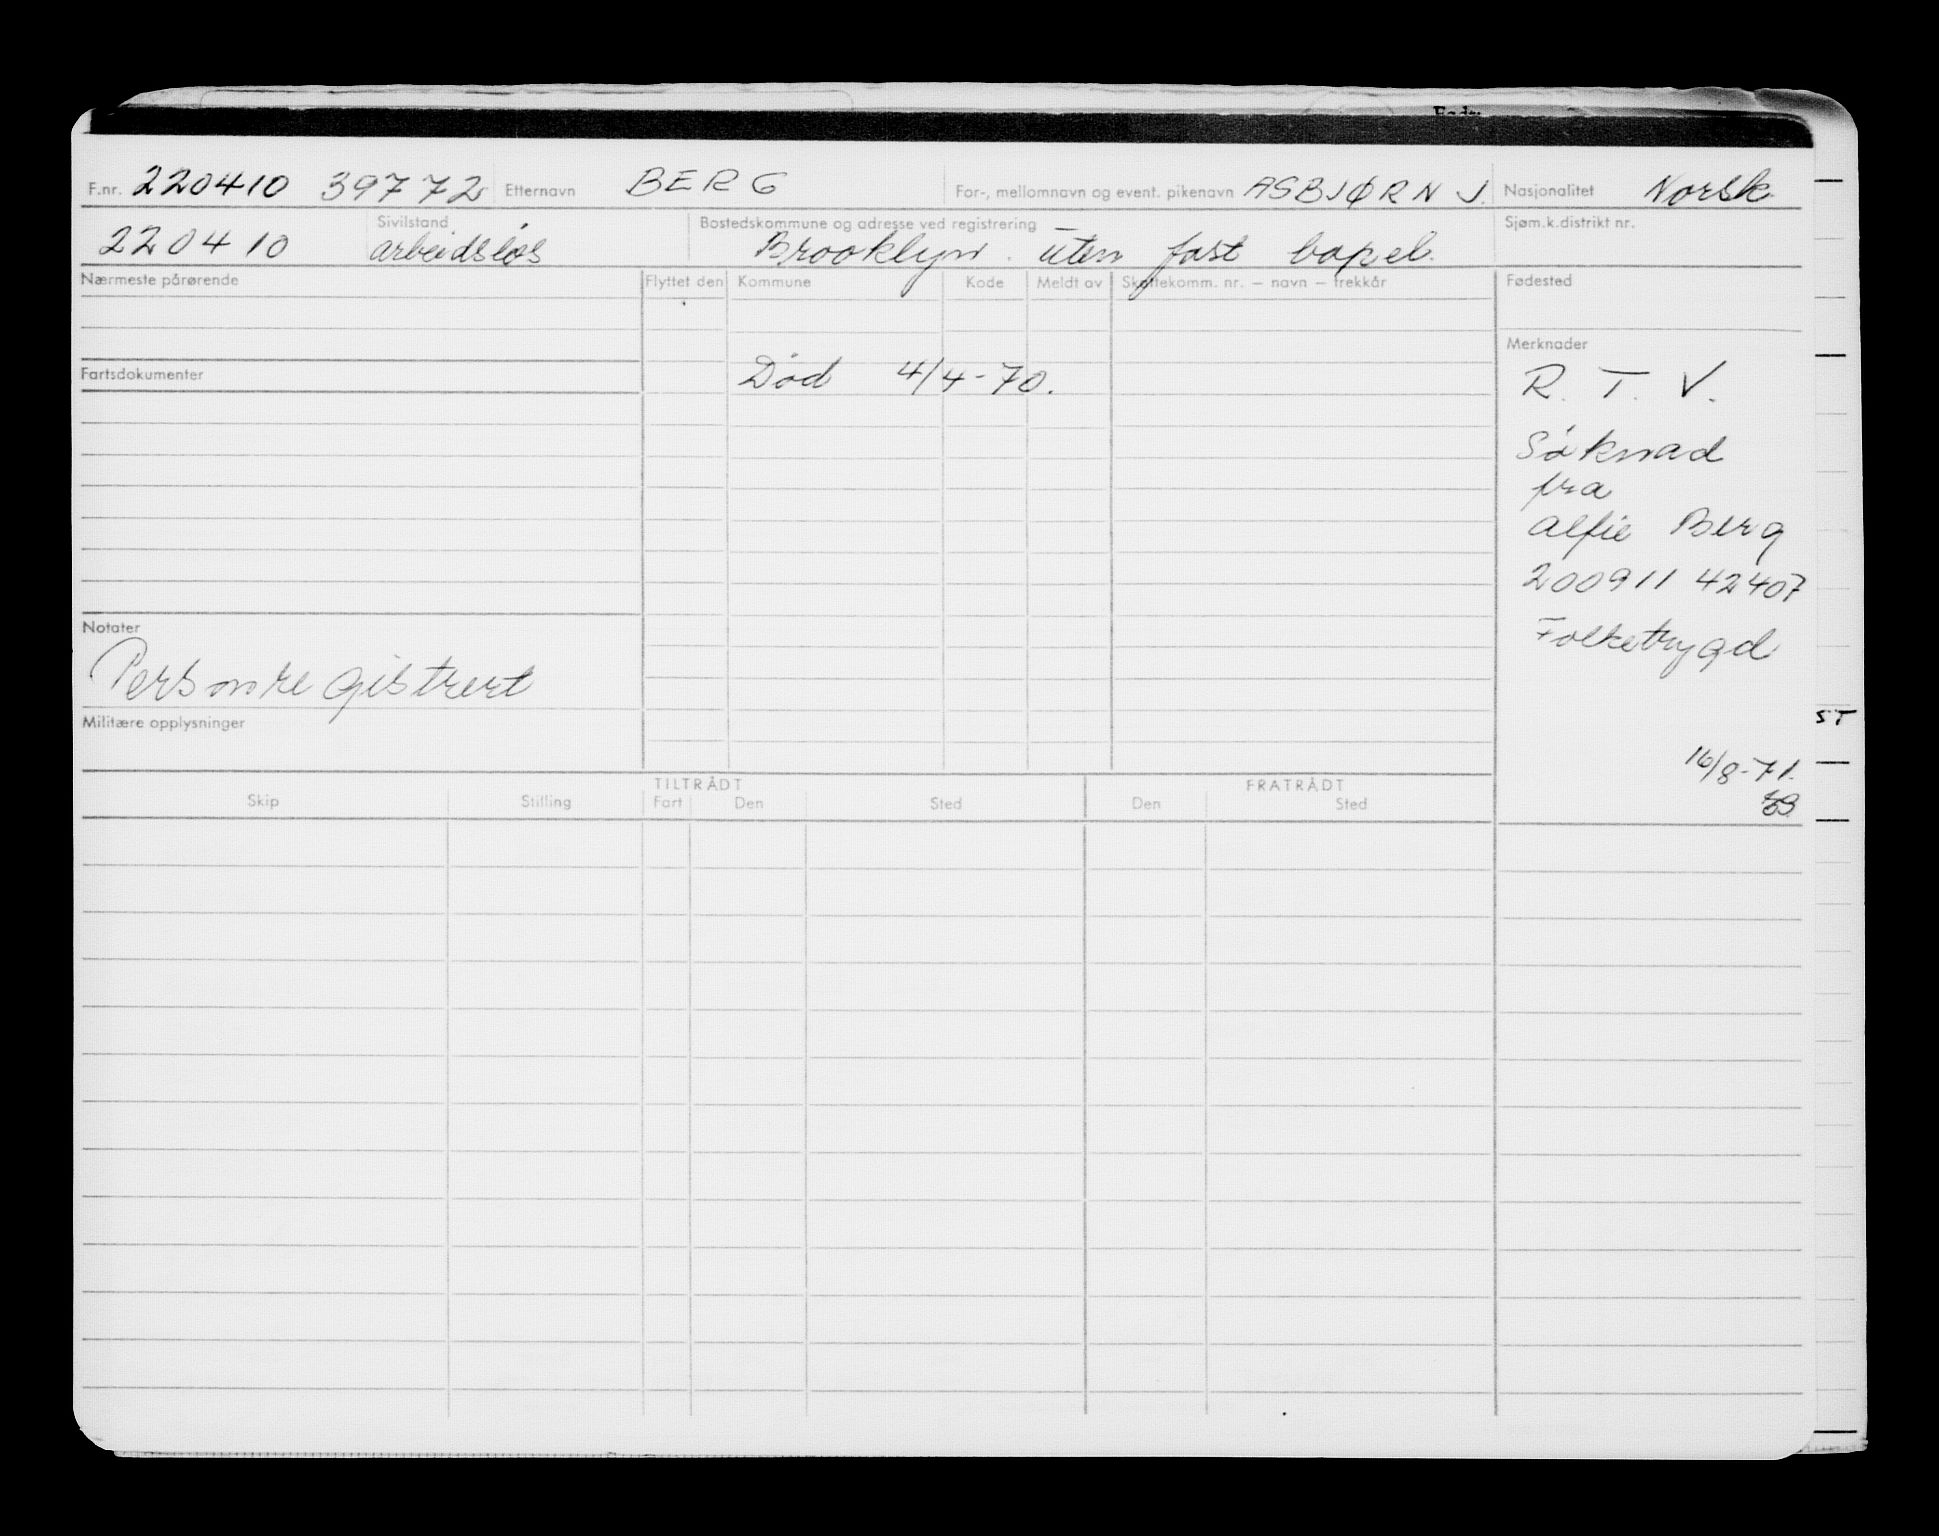 F.nr. 220410 39772 Etternavn BERG For-, mellomnavn og event. pikenavn ASBJØRN J. Nasjonalitet Norsk
220410 Sivilstand arbeidsløs Bostedskommune og adresse ved registrering Brooklyn. uten fast bopel. Sjøm.k.distrikt nr.
Nærmeste pårørende Flyttet den Kommune Kode Meldt av Skattekomm. nr. – navn – trekkår Fødested
Merknader
Fartsdokumenter Død 4/4-70. R. T. V.
Søknad
fra
Alfie Berg
200911 42407
Notater Folketrygd
Personregistrert
Militære opplysninger
ST
16/8-71.
TILTRÅDT FRATRÅDT
Skip Stilling Fart Den Sted Den Sted